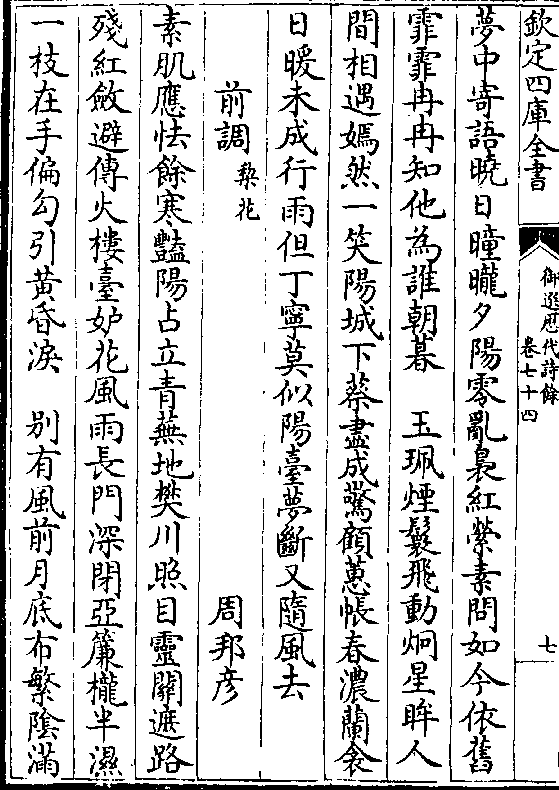 欽定四庫全書
御選歷代詩餘
卷七十四
七
夢中寄語曉日曈曨夕陽零亂裊紅縈素問如今依舊
霏霏冉冉知他為誰朝暮　玉珮煙鬟飛動炯星眸人
間相遇嫣然一笑陽城下蔡盡成驚顧蕙帳春濃蘭衾
日暖未成行雨但丁寧莫似陽臺夢斷又隨風去
前調棃花　周邦彦
素肌應怯餘寒豔陽占立青蕪地樊川照目靈關遮路
殘紅斂避傳火樓臺妒花風雨長門深閉亞簾櫳半濕
一枝在手偏勾引黃昏淚　别有風前月底布繁陰滿